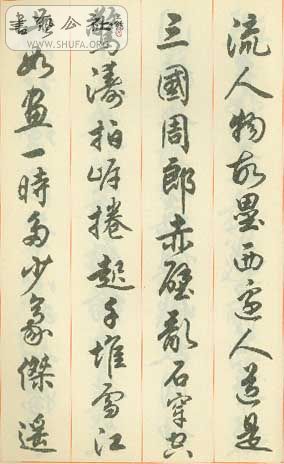 流人物故壘西邊人道是
三國周郎赤壁亂石穿空
驚濤拍岸捲起千堆雪江
如畫一時多少豪傑遙
WWW.SHUFA.ORG